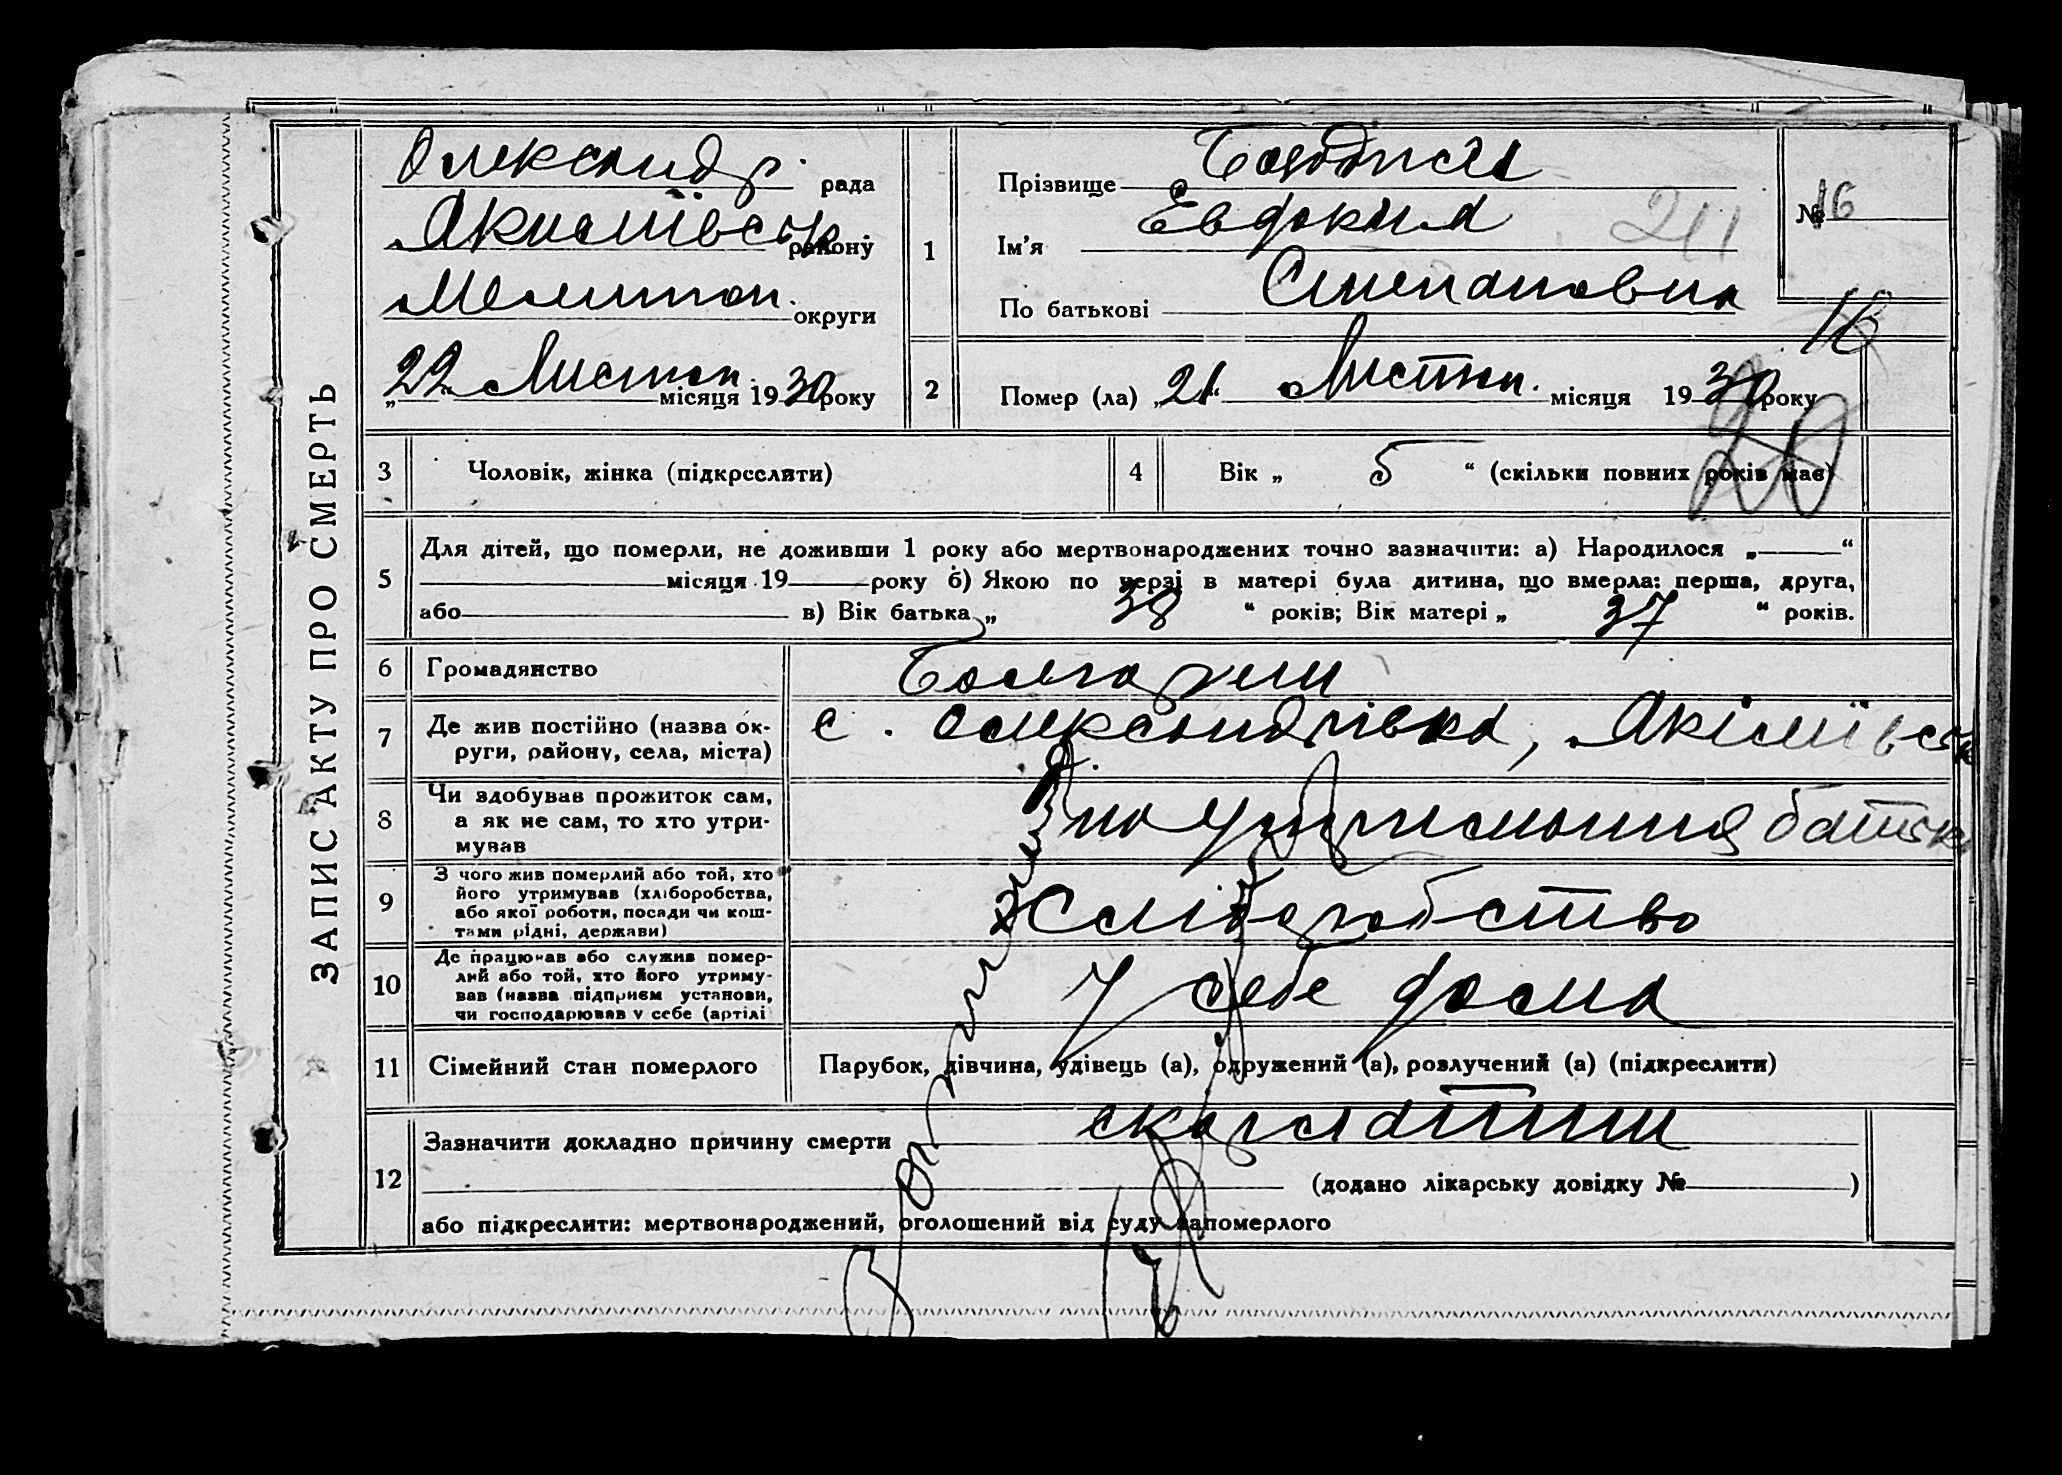 ЗАПИС АКТУ ПРО СМЕРТЬ
Олександр. рада
Якимівськ. району
Мелитоп. округи
„22“ Листоп. місяця 1930 року
1
Прізвище
Ім'я Евдокия
По батькові Степановна
№ 16
211
16
2
Помер (ла) „21“ Листоп. місяця 1930 року
20
3 Чоловік, жінка (підкреслити)
4 Вік „ 5 “ (скільки повних років має)
5
Для дітей, що померли, не доживши 1 року або мертвонароджених точно зазначити: а) Народилося „ “
місяця 19 року б) Якою по черзі в матері була дитина, що вмерла: перша, друга,
або в) Вік батька „ 38 “ років; Вік матері „ 37 “ років.
6 Громадянство
7 Де жив постійно (назва ок-
руги, району, села, міста)
с. Олександрівка, Якімівськ
р.
8 Чи здобував прожиток сам,
а як не сам, то хто утри-
мував
на утримання батьк
9 З чого жив померлий або той, хто
його утримував (хліборобства,
або якої роботи, посади чи кош-
тами рідні, держави)
Хліборобство
10 Де працював або служив помер-
лий або той, хто його утриму-
вав (назва підприєм установи,
чи господарював у себе (артілі
У себе дома
11 Сімейний стан померлого
Парубок, дівчина, удівець (а), одружений (а), розлучений (а) (підкреслити)
12
Зазначити докладно причину смерти скарлатини
(додано лікарську довідку № )
або підкреслити: мертвонароджений, оголошений від суду запомерлого